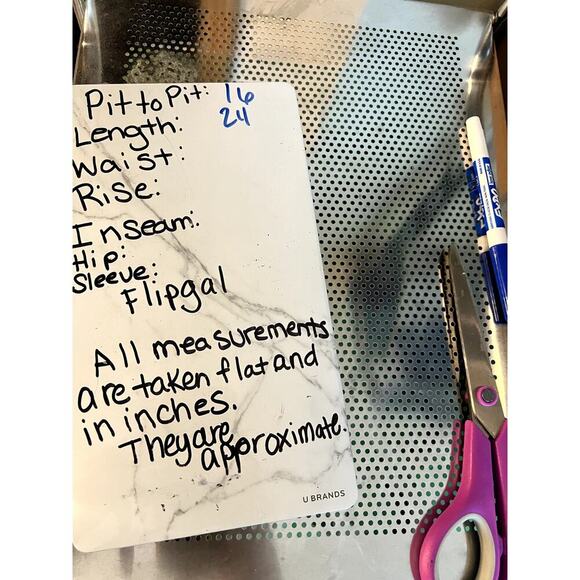 Pit to Pit: 16
Length: 24
Waist:
Rise:
Inseam:
Hip:
Sleeve:
Flipgal
All measurements
are taken flat and
in inches.
They are
approximate.
U BRANDS
EXPO